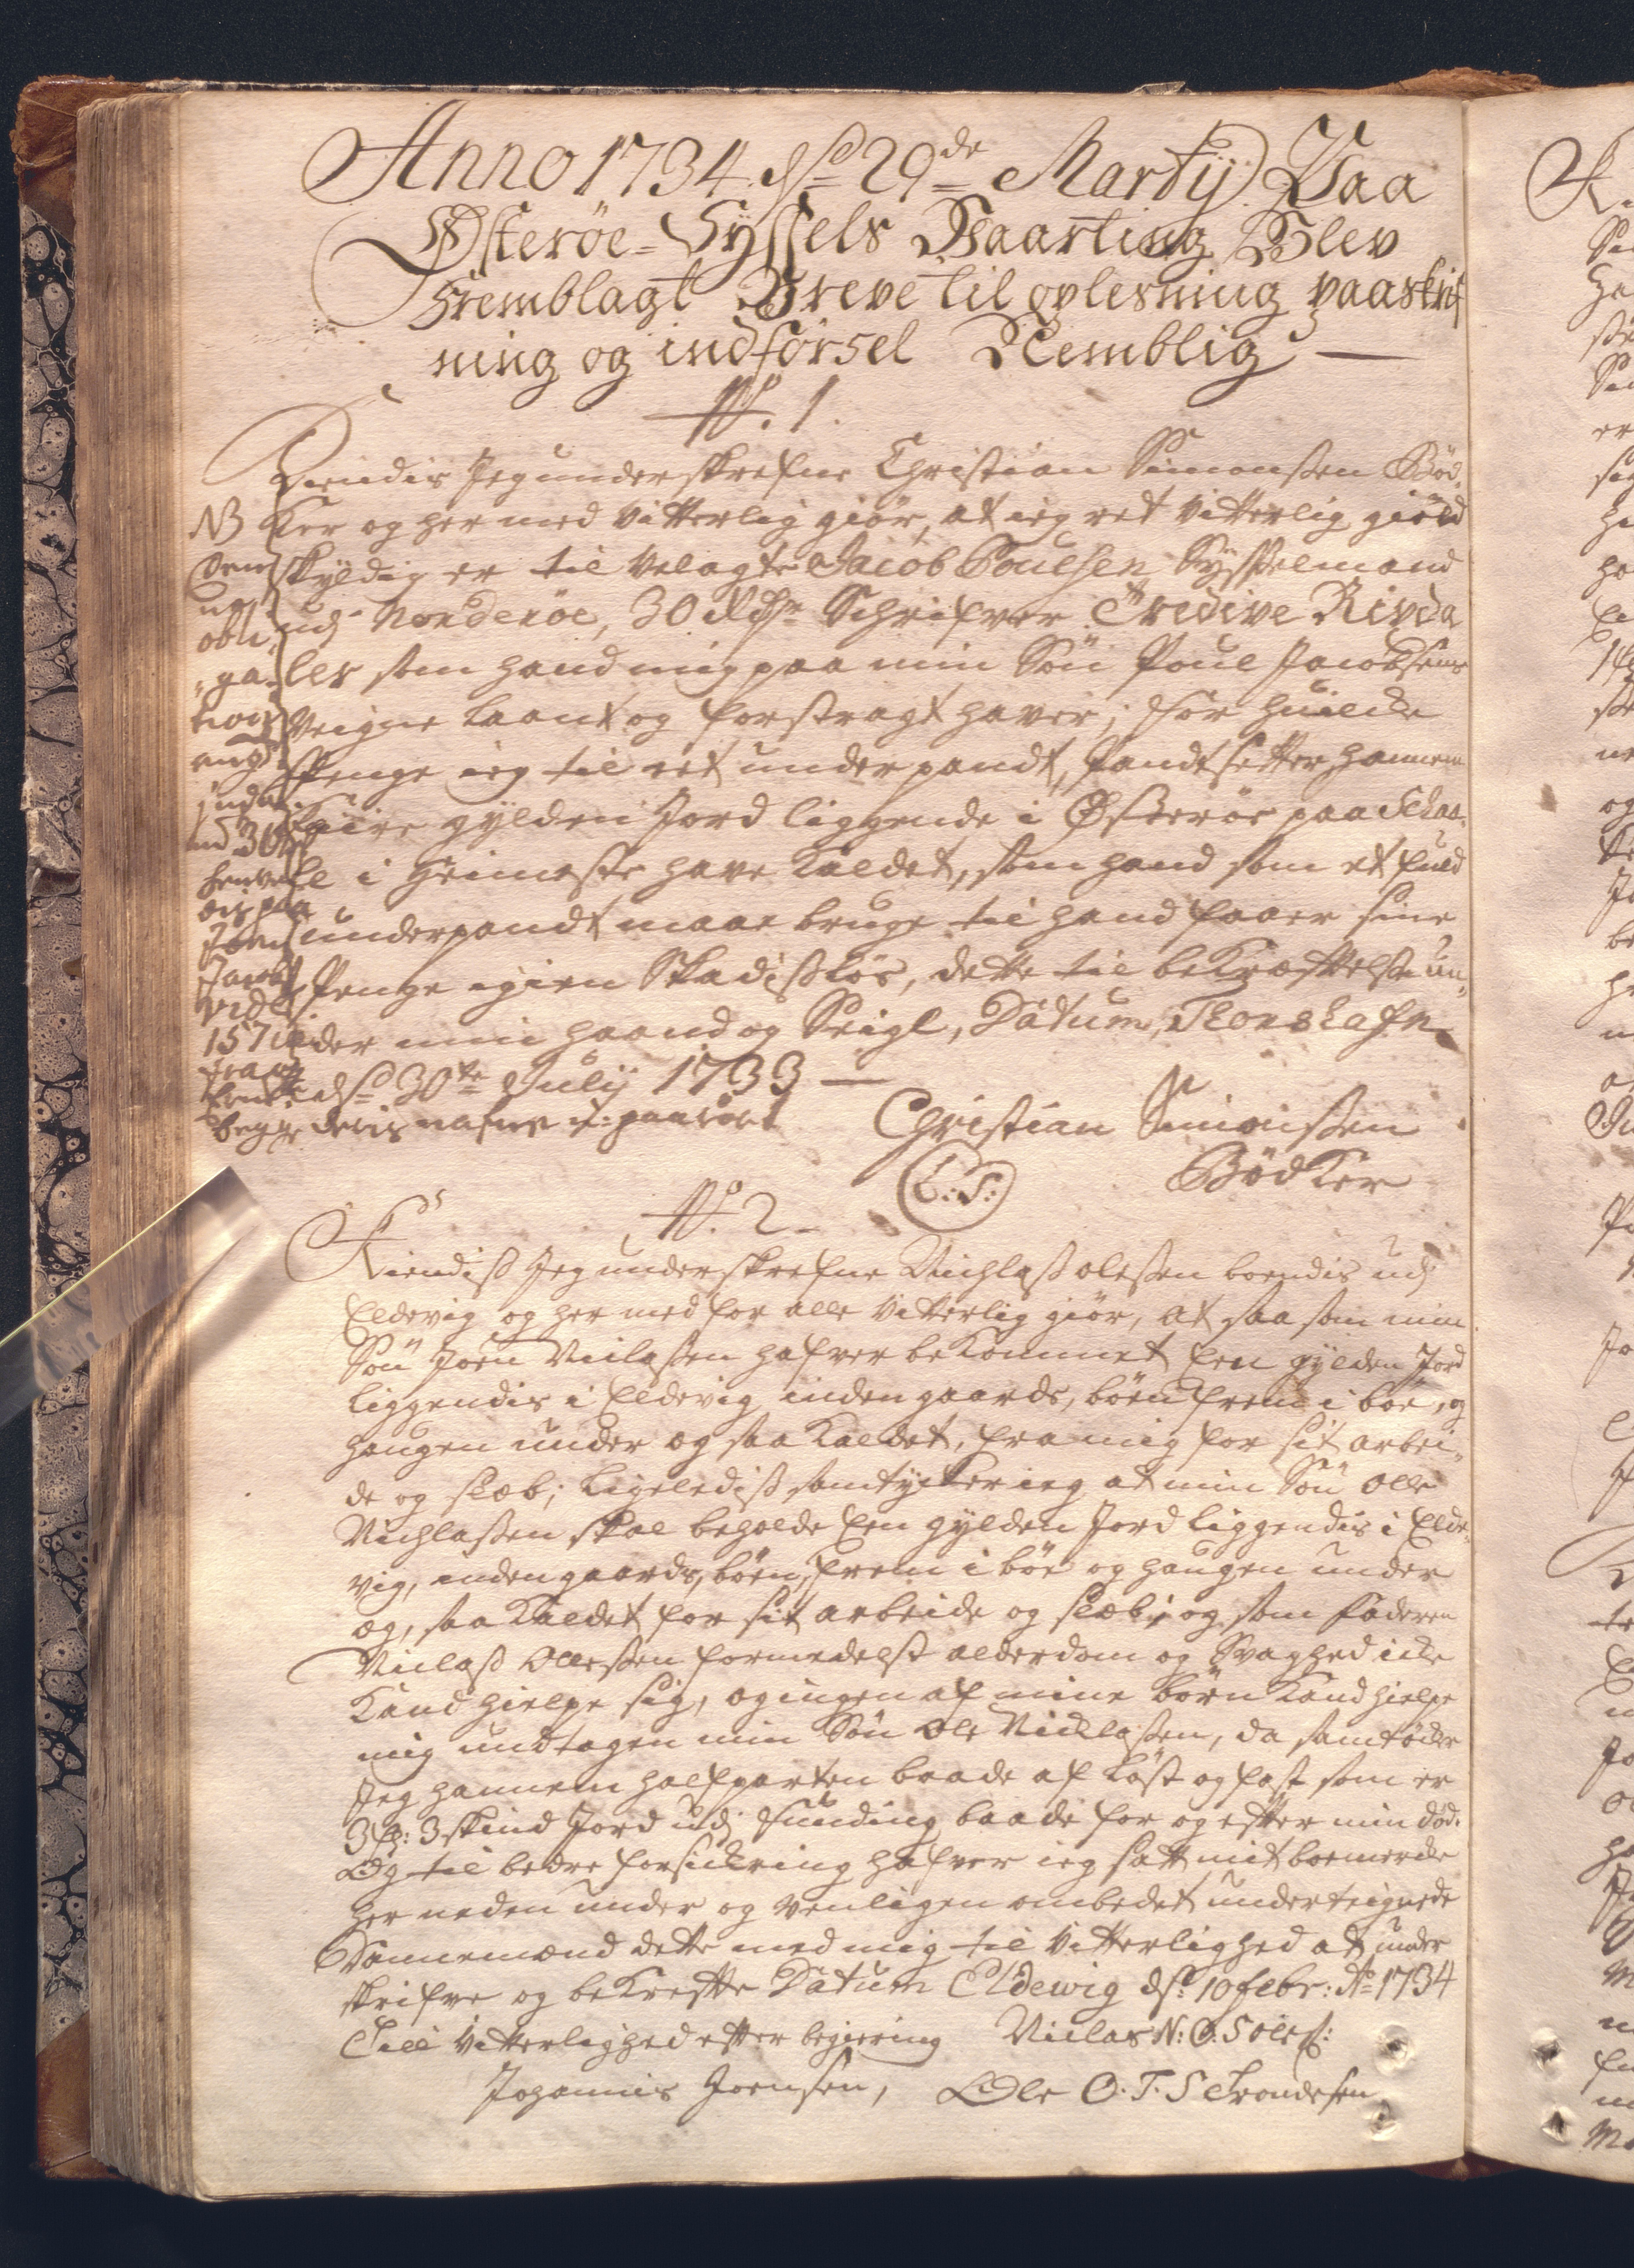 Anno 1734. dend 29de Martij Paa
Østeröe-Syssels Vaarting Blev
Fremblagt Breve til oplesning paaskrif
ning og indförsel Nemblig —
No. 1.
Kiendis Jeg underskrefne Christian Simonßen Bød-
ker og her med vitterlig giör, at ieg ret vitterlig giæld
skyldig er til velagte Jacob Poulsen Sysselmand
udj Norderöe, 30 Rdr Schrifver Tredive Rixda
ler som hand mig paa min Sön Poul Jacobsens
Veigne laant og forstragt haver; for huilcke
Penge ieg til ret underpandt, Pandtsetter hannem
fiire gylden Jord liggende i Østeröe paa Skaa-
le i Heimeste have kaldet, som hand som et fuld
underpandt maae bruge til hand faaer sine
Penge igien Skadislös, dette til bekræfttelse un-
der min haand og Seigl, Datum, Thorshafn
d. 30te Julij 1733 —
Christian Simonßen
Bødker
(L:S:)
NB
Denne
obli-
ga-
tion
begge deris nafne
No. 2
Kiendiß Jeg underskrefne Nichlaß oleßen boendis udj
Eldevig og her med for alle vitterlig giör, at saa som min
Sön Joen Niclaßen hafver bekommet Een gylden Jord
liggendis i Eldevig inden gaards, böen frem i böe, og
haugen under og saa kaldet, fra mig for sit arbei-
de og slæb; ligelediß samtycker ieg at min Sön Olle
Nichlaßen skal beholde Een gylden Jord liggendis i Elde-
vig, inden gaards, böen, frem i böe og haugen under
og, saa kaldet for sit arbeide og slæb, og som faderen
Niclaß Olleßen formedelst alderdom og Svaghed icke
kand hielpe sig, og ingen af mine börn kand hielpe
mig undtagen min Sön Ole Nicklaßen, da samtöcker
Jeg hannem halfparten baade af löst og fast som er
3 g: 3 skind Jord udj Funding baade for og efter min död.
Og til bedre forsickring hafver ieg satt mit boemercke
her neden under og venligen ombedet underteignede
Dannemænd dette med mig til Vitterlighed at under
skrifve og bekrefte Datum Eldewig d. 10 febr: Ao 1734
Till Vitterlighed efter begiering Niclas N: O: S Oles:
Johannis Joensen, Ole O. T. S Trondesen